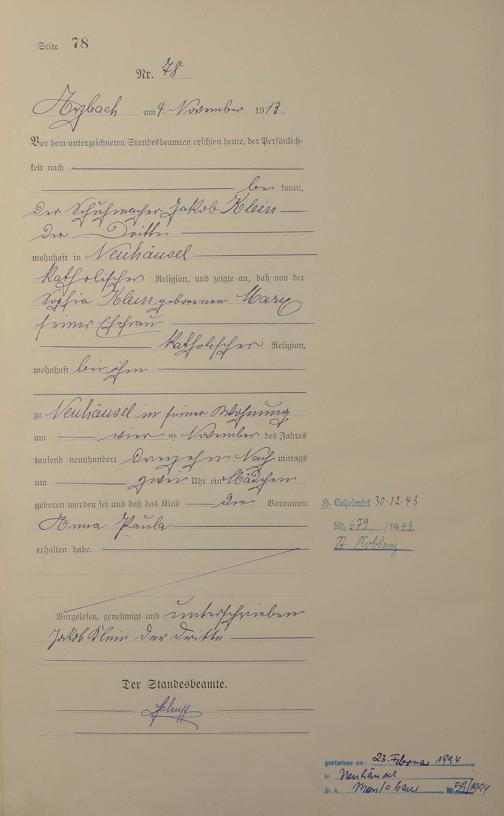 Seite 78
Nr. 78
Arzbach am 4. November 1913.
Vor dem unterzeichneten Standesbeamten erschien heute, der Persönlich-
keit nach
be kannt,
der Schuhmacher Jakob Klein
der Dritte
wohnhaft in Neuhäusel
katholischer Religion, und zeigte an, daß von der
Sofia Klein geborenen Marx
seiner Ehefrau
katholischer Religion,
wohnhaft bei ihm
zu Neuhäusel in seiner Wohnung
am vier ten November des Jahres
tausend neunhundert dreyzehn Nach mittags
um zwei Uhr ein Mädchen
geboren worden sei und daß das Kind die Vornamen
Anna Paula
erhalten habe.
Vorgelesen, genehmigt und unterschrieben
Jakob Klein der Dritte
Der Standesbeamte.
30.12.43
Nr. 679 /1943
Koblenz
gestorben am: 23. Februar 1994
in Neuhäusel
St. A. Montabaur Nr. /1994